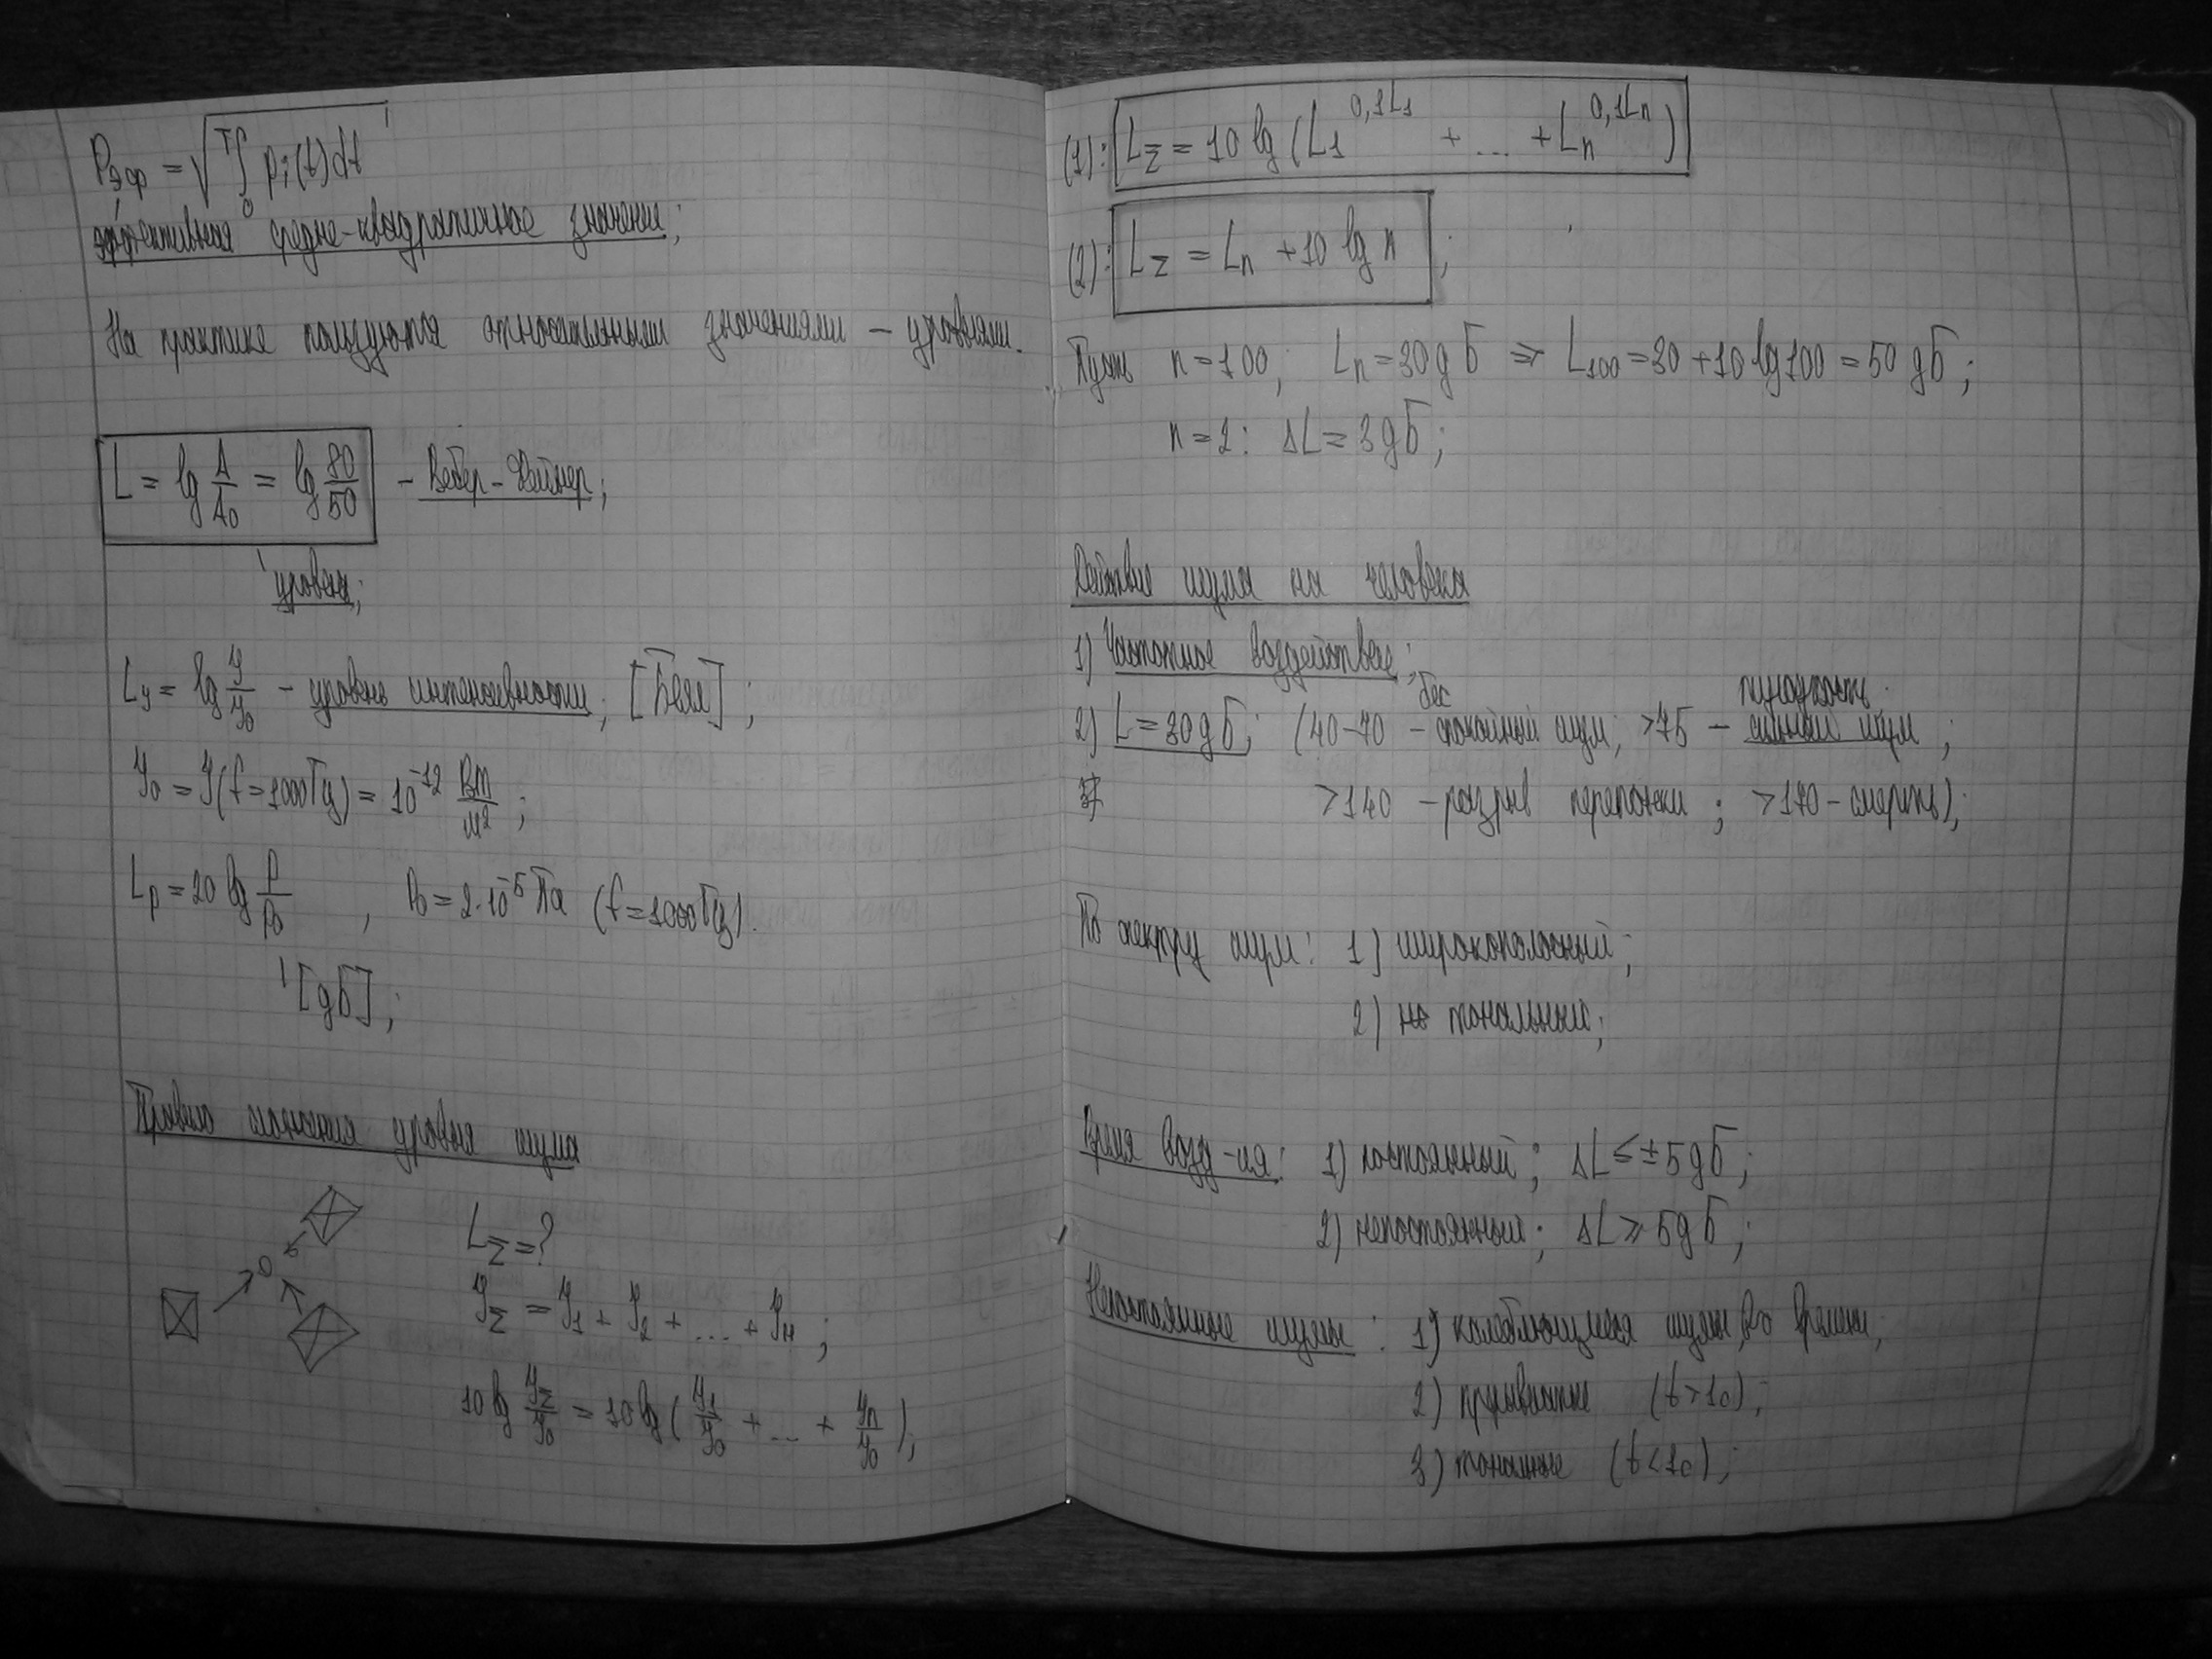 Pэф = √(T∫0 pi(t)dt)
эффективная средне-квадратичное значение;
На практике пользуются относительными значениями – уровнями.
L = lg A/A0 = lg 80/50 – Вебер-Фейнер;
уровень;
Lу = lg У/У0 – уровень интенсивности; [Белл];
У0 = У(f=1000Гц) = 10^-12 Вт/м²;
Lp = 20 lg P/P0, P0 = 2·10^-5 Па (f=1000Гц).
[дБ];
Правило сложения уровня шума
LΣ = ?
УΣ = У1 + У2 + ... + Ун;
10 lg УΣ/У0 = 10 lg (У1/У0 + ... + Уn/У0);
(1): LΣ = 10 lg (L1^0,1L1 + ... + Ln^0,1Ln)
(2): LΣ = Ln + 10 lg n;
Пусть n=100; Ln=30дБ ⇒ L100=30+10lg100=50дБ;
n=2: ΔL=3дБ;
Действие шума на человека
1) Частотное воздействие;
2) L=30дБ; (40-70 – беспокойный шум; >75 – сильный шум;
>140 – разрыв перепонки; >170 – смерть);
По спектру шум: 1) широкополосный;
2) но тональный;
Время возд-ия: 1) постоянный; ΔL ≤ ±5дБ;
2) непостоянный; ΔL ≥ 5дБ;
Непостоянные шумы: 1) колеблющиеся шумы во времени;
2) прерывистые (t>1c);
3) тональные (t<1c);